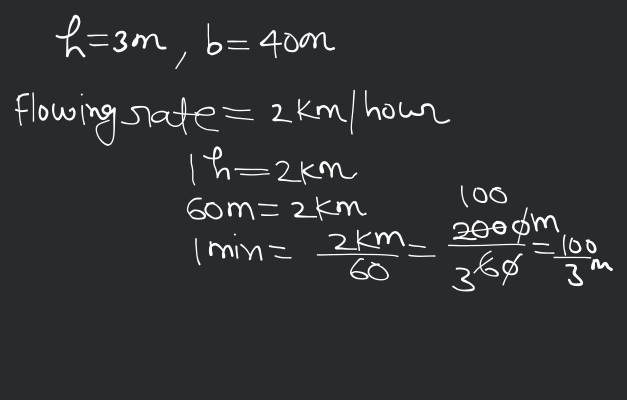 h=3m, b=40m
Flowing rate = 2km/hour
1h=2km
60m=2km
1min = 2km/60 = 2000m/60 = 100/3 m
100
3